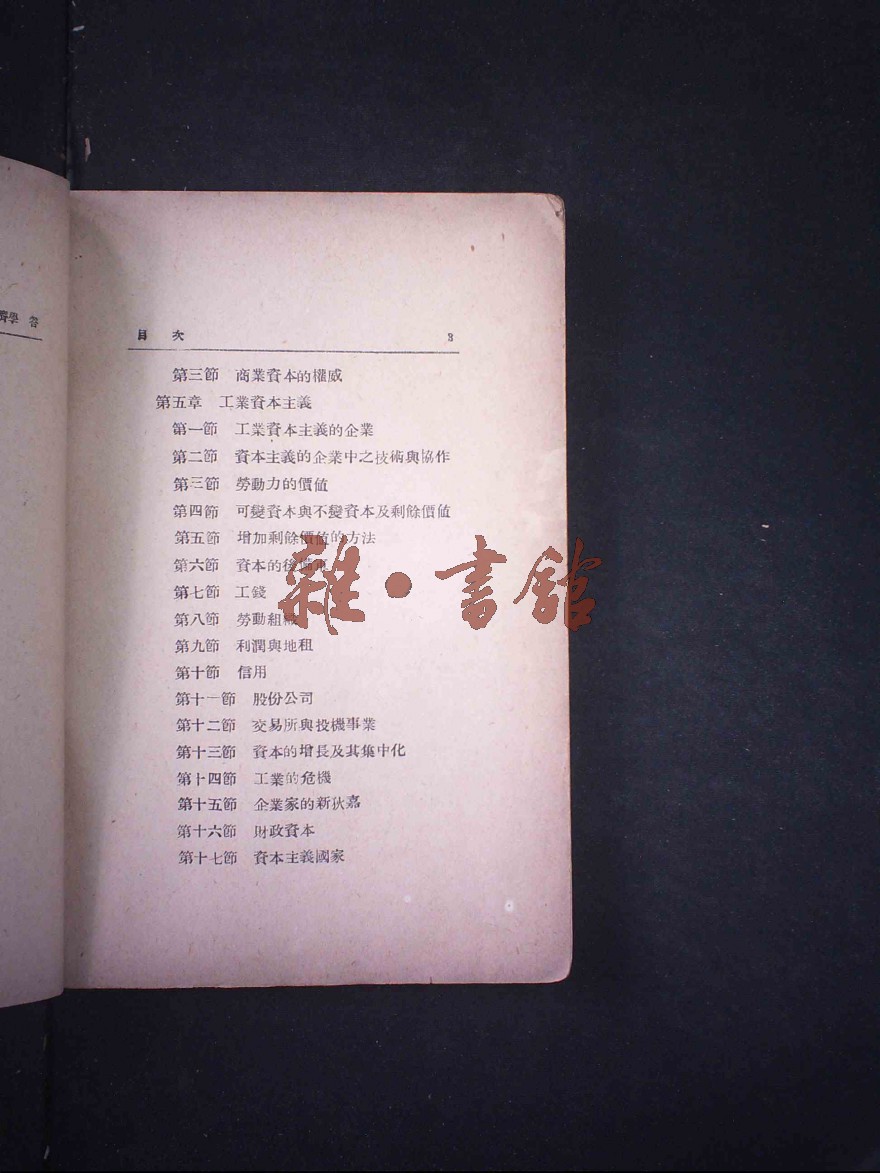 濟學 答
目 次 3
第三節 商業資本的權威
第五章 工業資本主義
第一節 工業資本主義的企業
第二節 資本主義的企業中之技術與協作
第三節 勞動力的價值
第四節 可變資本與不變資本及剩餘價值
第五節 增加剩餘價值的方法
第六節 資本的後備軍
第七節 工錢
第八節 勞動組織
第九節 利潤與地租
第十節 信用
第十一節 股份公司
第十二節 交易所與投機事業
第十三節 資本的增長及其集中化
第十四節 工業的危機
第十五節 企業家的新狄嘉
第十六節 財政資本
第十七節 資本主義國家
雜·書館